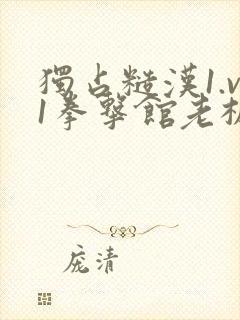 獨占糙漢1.v
1拳擊館老板
庞清